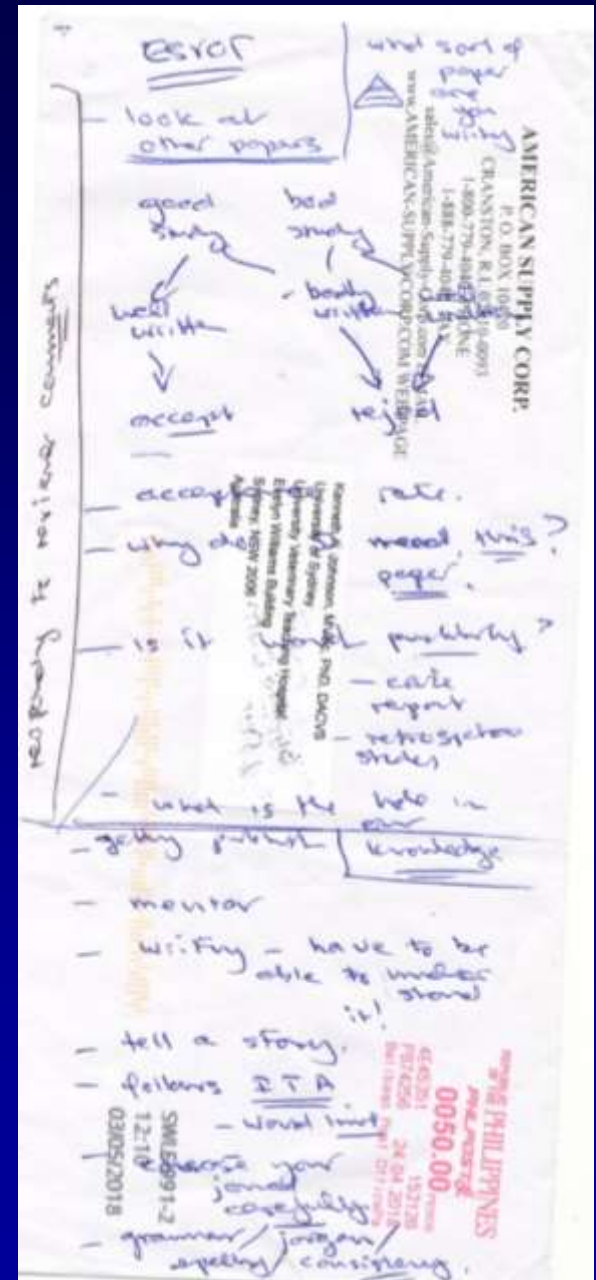 ESVOT
what sort of
paper
are
you
writing
- look at
other papers
good
study
bad
study
well
written
- badly
written
accept
reject
- acceptance rate.
- why do need this?
paper.
- is it worth publishing?
- case
report
- retrospective
studies
- what is the hole in
our
knowledge
responding to reviewer comments
- getting publish
- mentor
- writing - have to be
able to under
stand
it!
- tell a story.
- follows ITA
- word limit
- choose your
journal
carefully
- grammar / jargon /
spelling / consistency.
AMERICAN SUPPLY CORP.
P.O. BOX
CRANSTON, R.I.
sales@American-Supply-Corp.com EMAIL
www.AMERICAN-SUPPLYCORP.COM WEBPAGE
Johnson, PhD, DACVS
University of Sydney
University Veterinary Teaching Hospital
Evelyn Williams Building
Sydney, NSW 2006
Australia
PHILIPPINES
0050.00
24 04 2018
SWLE6991-2
12:10
03/05/2018